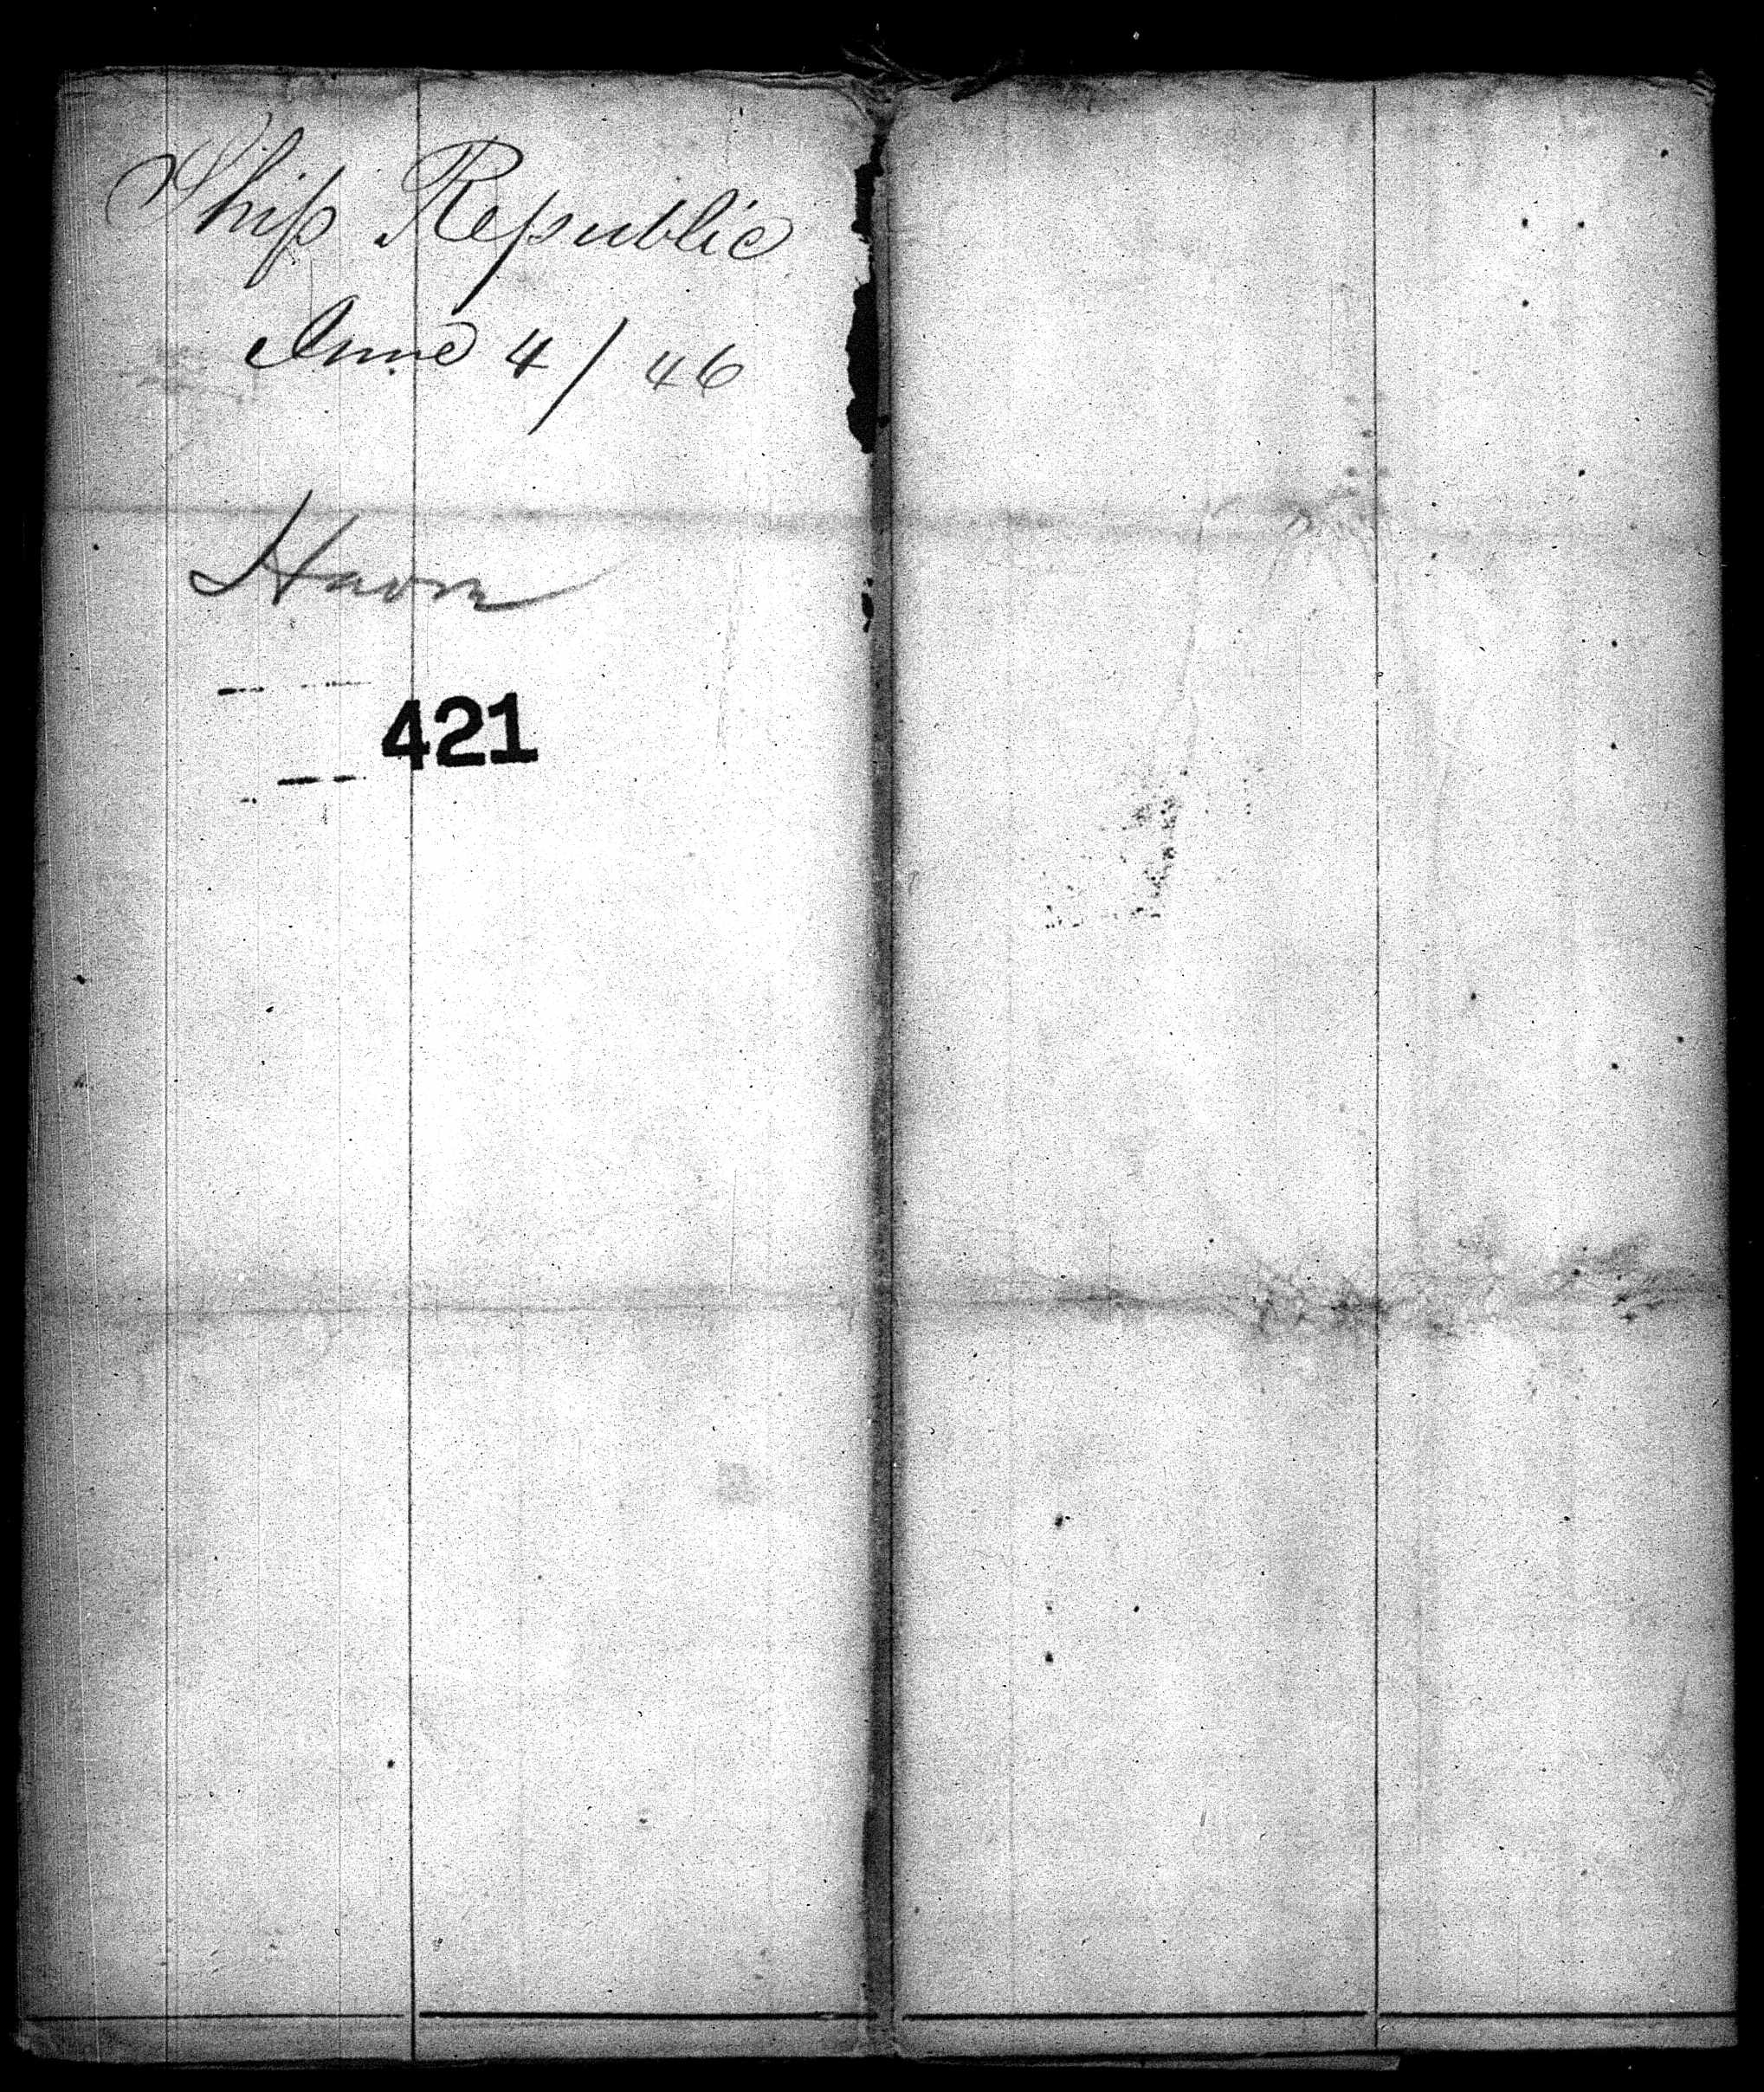 Ship Republic
June 4/46
Havre
421